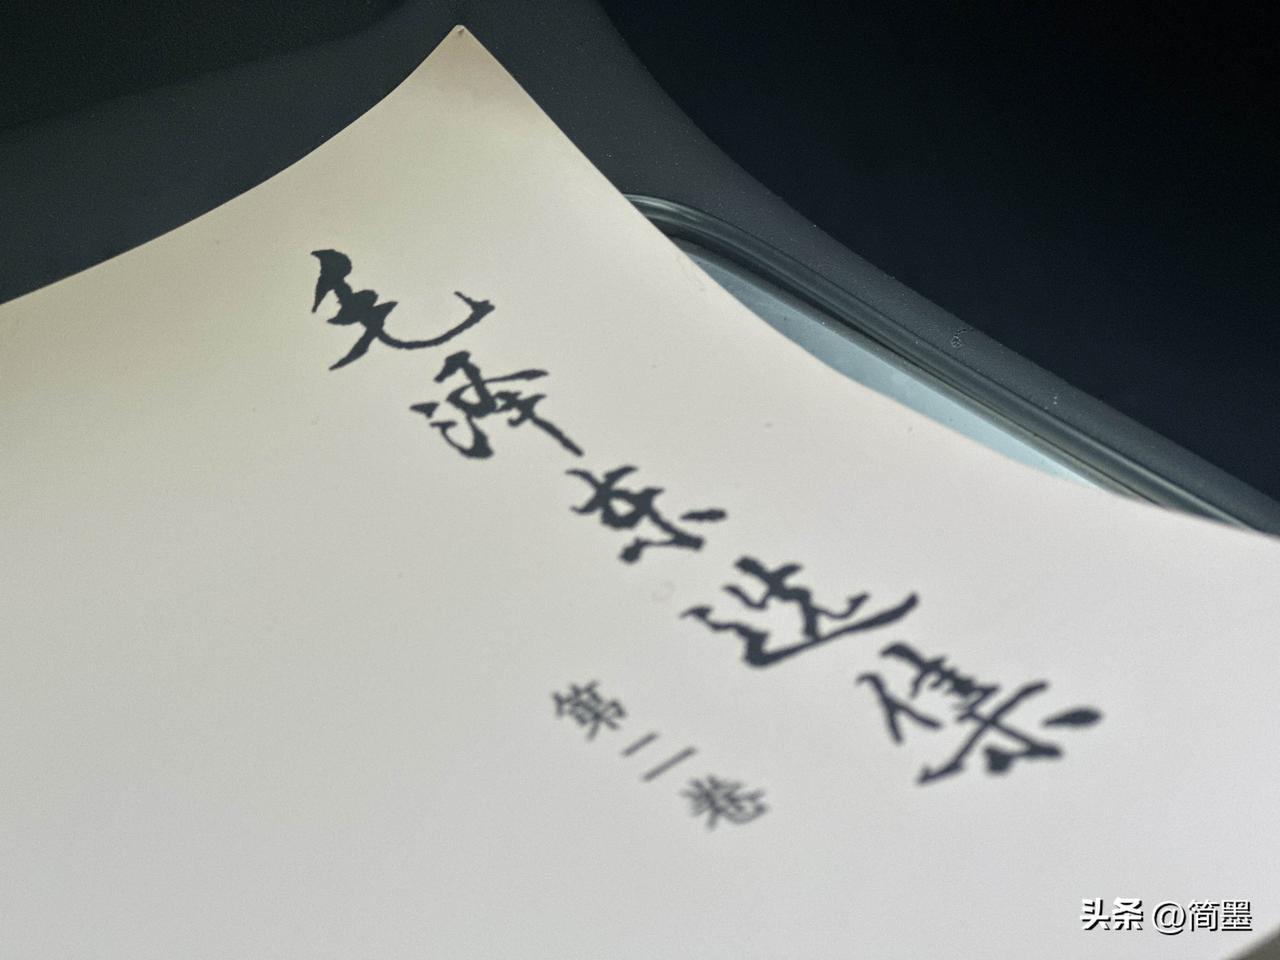 毛泽东选集
第二卷
头条 @简墨